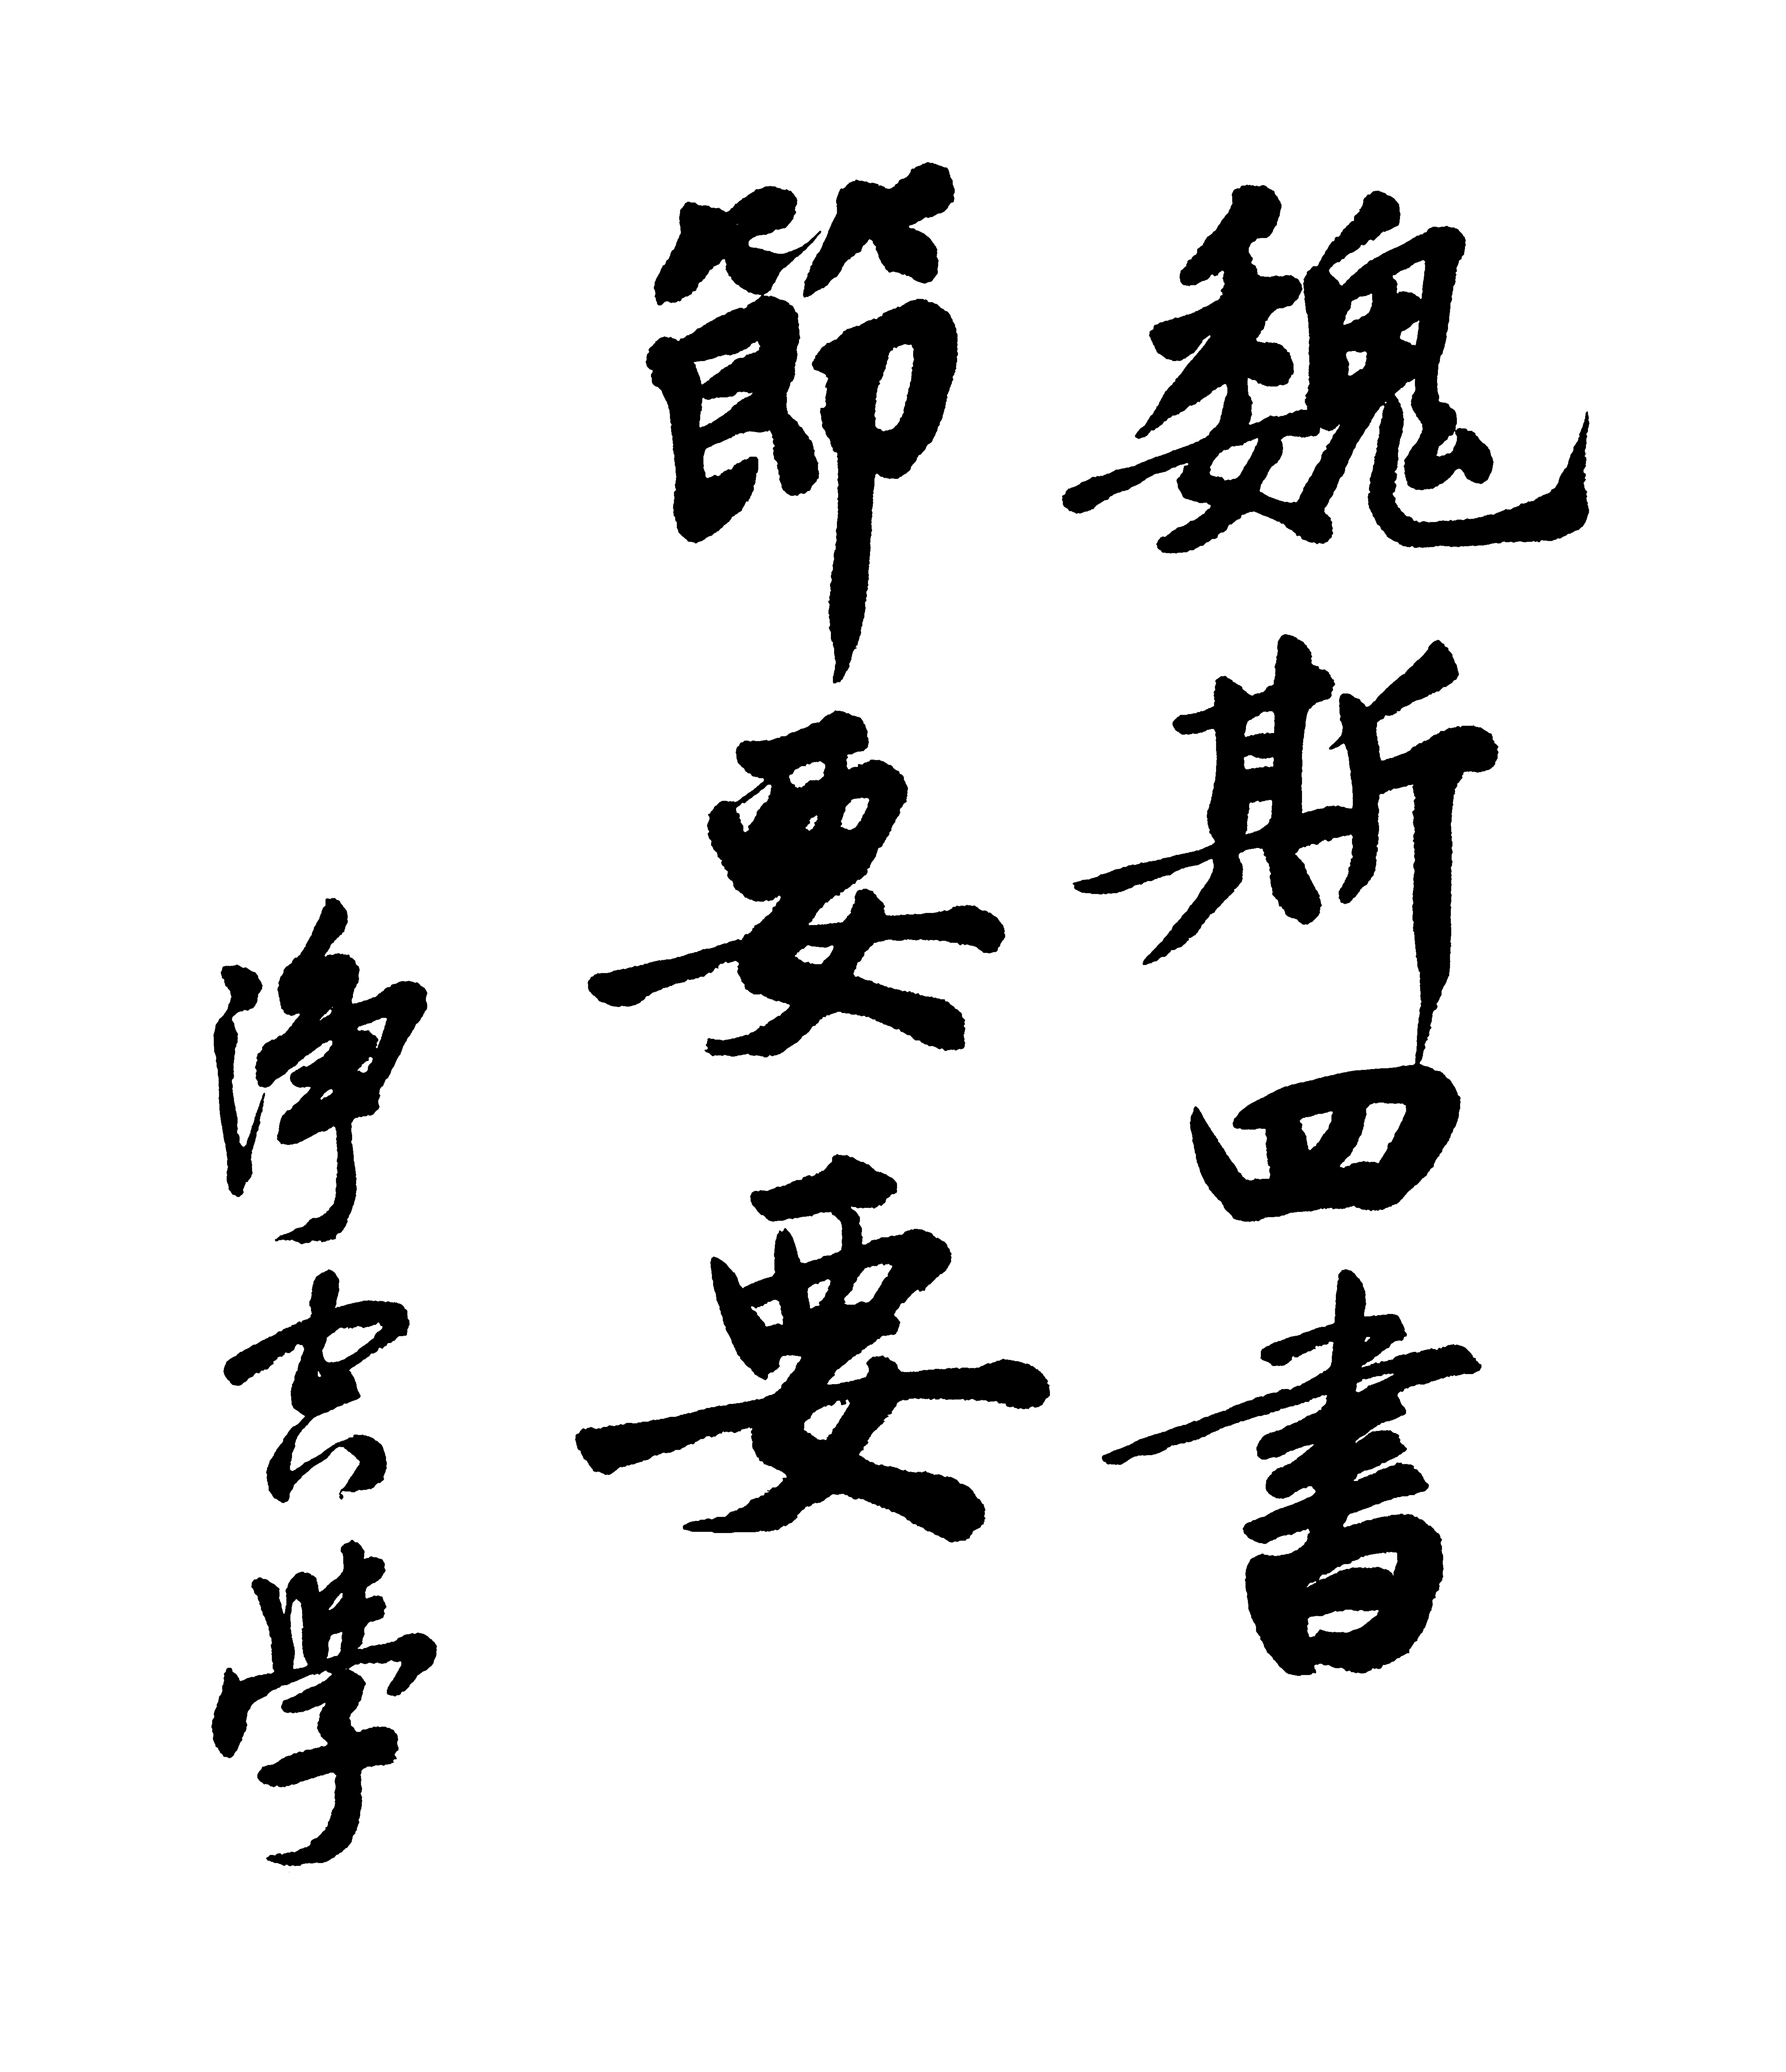 魏斯四書
節要要
净空學